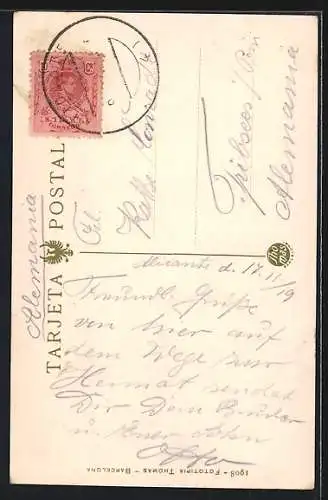 TARJETA POSTAL
Alemania
Frl.
Käthe
Alemania
Alicante d. 17.11/19
Freundl. Grüße
von hier auf
dem Wege zur
Heimat sendet
Dir Dein Bruder
u. Euer Sohn
Otto
1908 - FOTOTIPIA THOMAS - BARCELONA